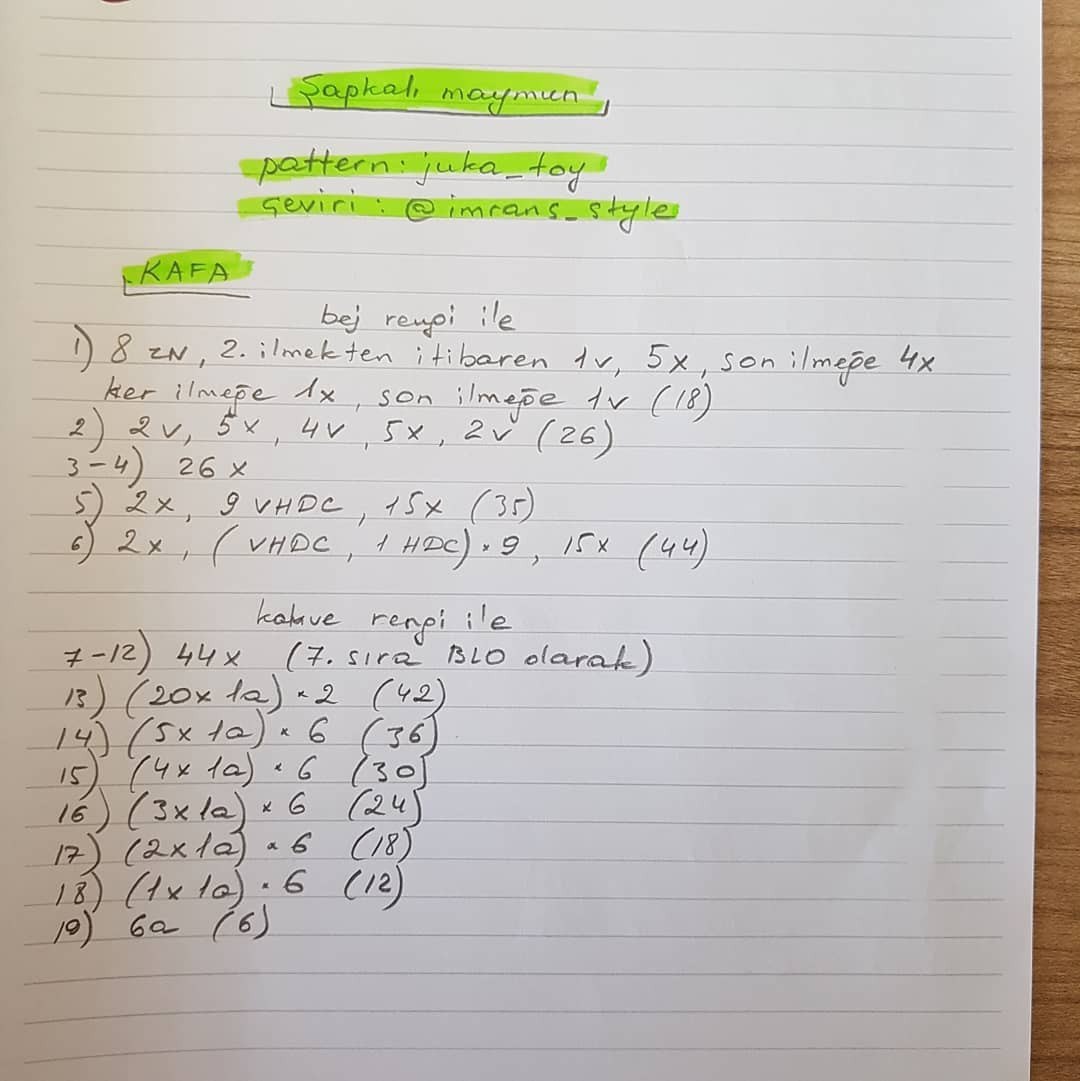 Şapkalı maymun
pattern: juka_toy
çeviri: @imrans_style
KAFA
bej rengi ile
1) 8 ZN, 2. ilmekten itibaren 1v, 5x, son ilmeğe 4x
her ilmeğe 1x, son ilmeğe 1v (18)
2) 2v, 5x, 4v, 5x, 2v (26)
3-4) 26x
5) 2x, 9 VHDC, 15x (35)
6) 2x, (VHDC, 1 HDC) × 9, 15x (44)
kahve rengi ile
7-12) 44x (7. sıra BLO olarak)
13) (20x 1a) × 2 (42)
14) (5x 1a) × 6 (36)
15) (4x 1a) × 6 (30)
16) (3x 1a) × 6 (24)
17) (2x 1a) × 6 (18)
18) (1x 1a) × 6 (12)
19) 6a (6)